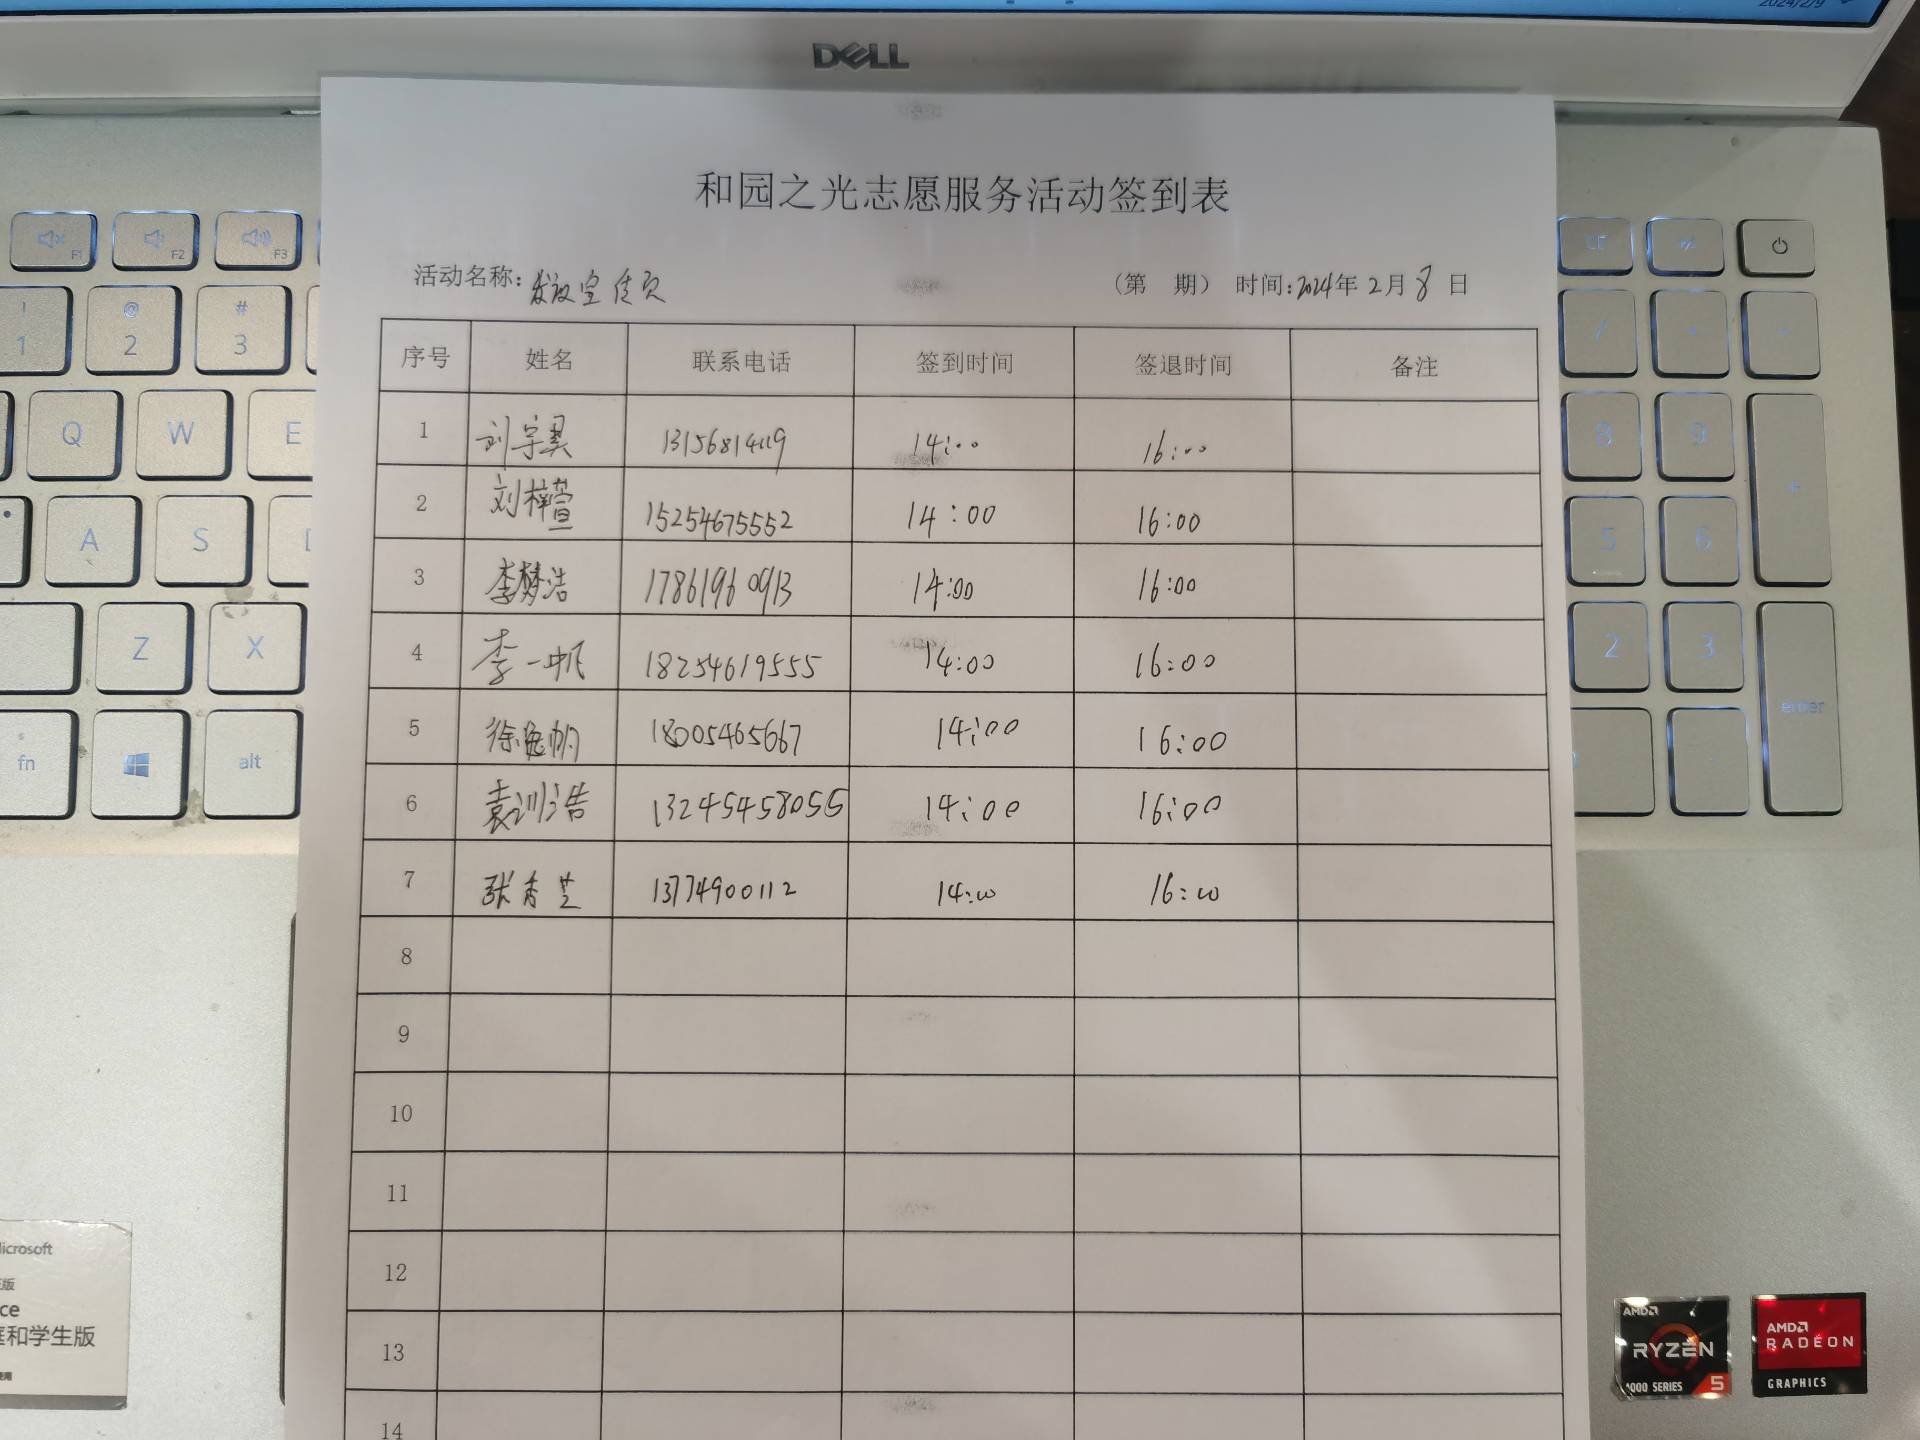 2024/2/9
DELL
和园之光志愿服务活动签到表
活动名称: 发放宣传页 （第 期） 时间:2024年 2月 8 日
序号 姓名 联系电话 签到时间 签退时间 备注
1 刘宗昊 14:00 16:00
2 刘梓萱 15254675552 14:00 16:00
3 李梦浩 17861960913 14:00 16:00
4 李一帆 18254619555 14:00 16:00
5 18005465667 14:00 16:00
6 袁训浩 13245458055 14:00 16:00
7 张秀芝 13774900112 14:00 16:00
8
9
10
11
12
13
14
F1 F2 F3
! 1 @ 2 # 3
Q W E
A S
Z X
fn alt
/ + -
8 9 +
5 6
2 3 enter
icrosoft
版
ce
庭和学生版
使用
AMD
RYZEN
4000 SERIES 5
AMD
RADEON
GRAPHICS